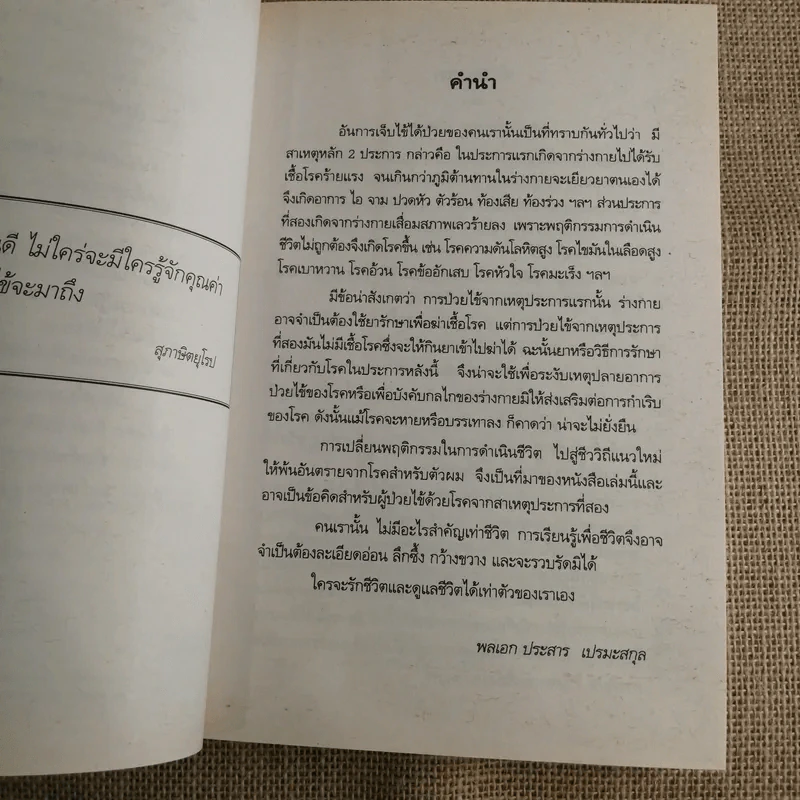 ดี ไม่ใคร่จะมีใครรู้จักคุณค่า
ข้จะมาถึง
สุภาษิตยุโรป
คำนำ
อันการเจ็บไข้ได้ป่วยของคนเรานั้นเป็นที่ทราบกันทั่วไปว่า มี
สาเหตุหลัก 2 ประการ กล่าวคือ ในประการแรกเกิดจากร่างกายไปได้รับ
เชื้อโรคร้ายแรง จนเกินกว่าภูมิต้านทานในร่างกายจะเยียวยาตนเองได้
จึงเกิดอาการ ไอ จาม ปวดหัว ตัวร้อน ท้องเสีย ท้องร่วง ฯลฯ ส่วนประการ
ที่สองเกิดจากร่างกายเสื่อมสภาพเลวร้ายลง เพราะพฤติกรรมการดำเนิน
ชีวิตไม่ถูกต้องจึงเกิดโรคขึ้น เช่น โรคความดันโลหิตสูง โรคไขมันในเลือดสูง
โรคเบาหวาน โรคอ้วน โรคข้ออักเสบ โรคหัวใจ โรคมะเร็ง ฯลฯ
มีข้อน่าสังเกตว่า การป่วยไข้จากเหตุประการแรกนั้น ร่างกาย
อาจจำเป็นต้องใช้ยารักษาเพื่อฆ่าเชื้อโรค แต่การป่วยไข้จากเหตุประการ
ที่สองมันไม่มีเชื้อโรคซึ่งจะให้กินยาเข้าไปฆ่าได้ ฉะนั้นยาหรือวิธีการรักษา
ที่เกี่ยวกับโรคในประการหลังนี้ จึงน่าจะใช้เพื่อระงับเหตุปลายอาการ
ป่วยไข้ของโรคหรือเพื่อบังคับกลไกของร่างกายมิให้ส่งเสริมต่อการกำเริบ
ของโรค ดังนั้นแม้โรคจะหายหรือบรรเทาลง ก็คาดว่า น่าจะไม่ยั่งยืน
การเปลี่ยนพฤติกรรมในการดำเนินชีวิต ไปสู่ชีววิถีแนวใหม่
ให้พ้นอันตรายจากโรคสำหรับตัวผม จึงเป็นที่มาของหนังสือเล่มนี้และ
อาจเป็นข้อคิดสำหรับผู้ป่วยไข้ด้วยโรคจากสาเหตุประการที่สอง
คนเรานั้น ไม่มีอะไรสำคัญเท่าชีวิต การเรียนรู้เพื่อชีวิตจึงอาจ
จำเป็นต้องละเอียดอ่อน ลึกซึ้ง กว้างขวาง และจะรวบรัดมิได้
ใครจะรักชีวิตและดูแลชีวิตได้เท่าตัวของเราเอง
พลเอก ประสาร เปรมะสกุล